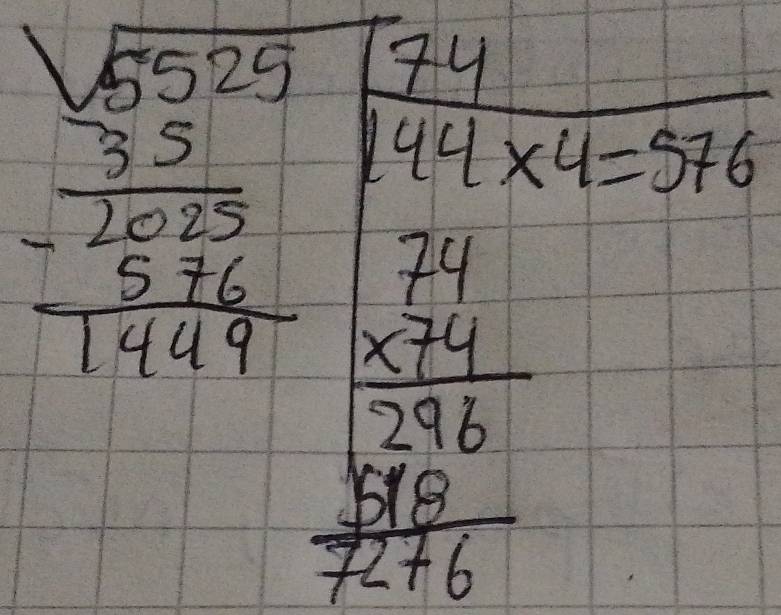 √5525 74
- 35 144 × 4 = 576
- 2025 74
576 × 74
1449 296
518
7276